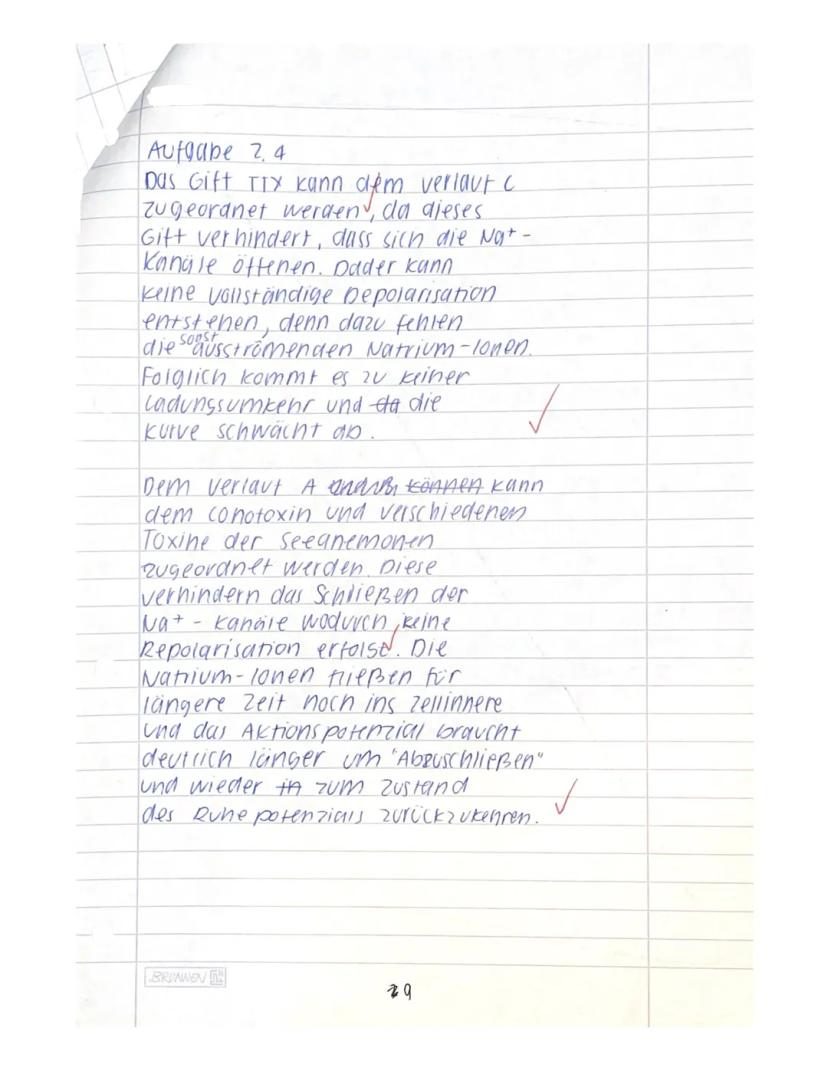 Aufgabe 2.4
Das Gift TTX kann dem verlauf C
zugeordnet werden, da dieses
Gift verhindert, dass sich die Na+-
Kanäle öffenen. Dader kann
keine vollständige Depolarisation
entstehen, denn dazu fehlen
die sonst ausströmenden Natrium-Ionen.
Folglich kommt es zu keiner
Ladungsumkehr und da die
kurve schwächt ab.
Dem verlauf A können kann
dem conotoxin und verschiedenen
Toxine der Seeanemonen
zugeordnet werden. Diese
verhindern das Schließen der
Na+ - kanäle wodurch keine
Repolarisation erfolgt. Die
Natrium-Ionen fließen für
längere Zeit noch ins Zellinnere
und das Aktionspotenzial braucht
deutlich länger um "Abzuschließen"
und wieder in zum Zustand
des Ruhepotenzials zurückzukehren.
BRUNNEN
29